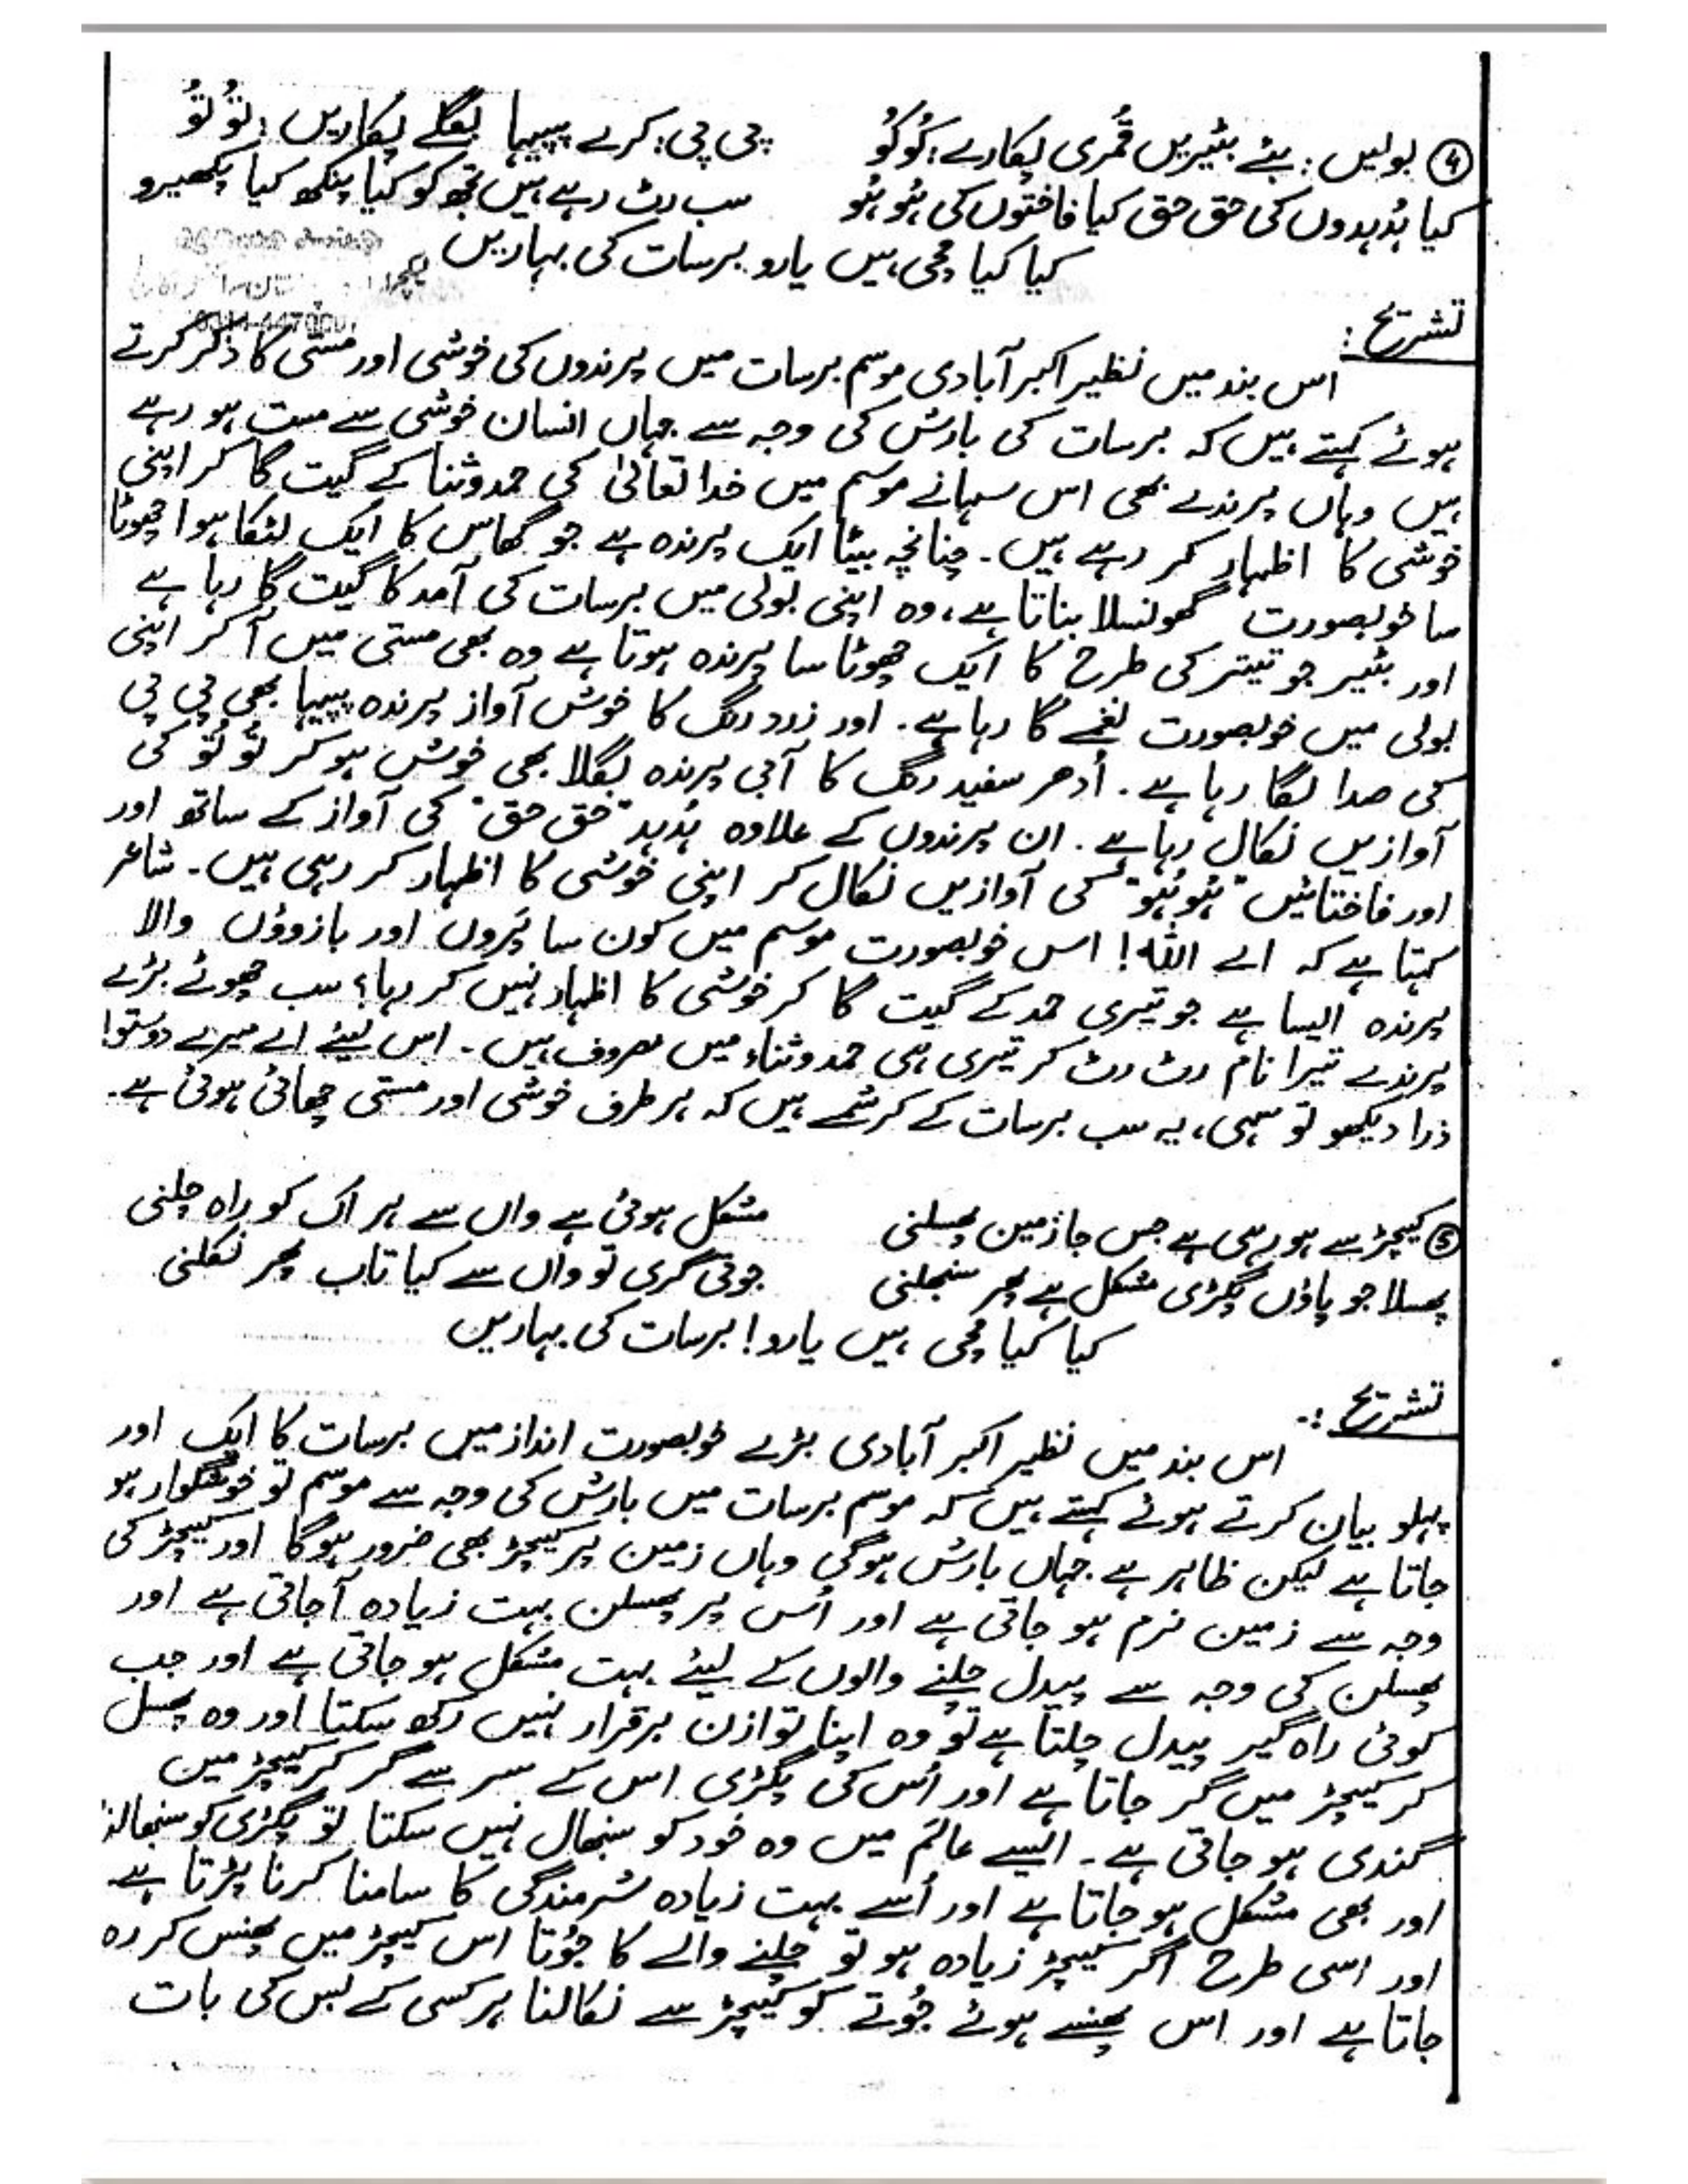 ④ بولیں: بئے بٹیریں قُمری پکارے: کُوکُو        پی پی: کرے پپیہا بگلے پکاریں: تُو تُو
کیا ہُدہدوں کی حق حق کیا فاختوں کی ہُو ہُو        سب رٹ رہے ہیں تجھ کو کیا پنکھ کیا پکھیرو
کیا کیا مچی ہیں یارو برسات کی بہاریں
تشریح:
اس بند میں نظیر اکبر آبادی موسم برسات میں پرندوں کی خوشی اور مستی کا ذکر کرتے
ہوئے کہتے ہیں کہ برسات کی بارش کی وجہ سے جہاں انسان خوشی سے مست ہو رہے
ہیں وہاں پرندے بھی اس سہانے موسم میں خدا تعالیٰ کی حمد و ثنا کے گیت گا کر اپنی
خوشی کا اظہار کر رہے ہیں۔ چنانچہ بیّا ایک پرندہ ہے جو گھاس کا ایک لٹکا ہوا چھوٹا
سا خوبصورت گھونسلا بناتا ہے، وہ اپنی بولی میں برسات کی آمد کا گیت گا رہا ہے
اور بٹیر جو تیتر کی طرح کا ایک چھوٹا سا پرندہ ہوتا ہے وہ بھی مستی میں آ کر اپنی
بولی میں خوبصورت نغمے گا رہا ہے۔ اور زرد رنگ کا خوش آواز پرندہ پپیہا بھی پی پی
کی صدا لگا رہا ہے۔ اُدھر سفید رنگ کا آبی پرندہ بگلا بھی خوش ہو کر تُو تُو کی
آوازیں نکال رہا ہے۔ ان پرندوں کے علاوہ ہُدہد "حق حق" کی آواز کے ساتھ اور
اور فاختائیں "ہُو ہُو" کی آوازیں نکال کر اپنی خوشی کا اظہار کر رہی ہیں۔ شاعر
کہتا ہے کہ اے اللہ! اس خوبصورت موسم میں کون سا پَروں اور بازوؤں والا
پرندہ ایسا ہے جو تیری حمد کے گیت گا کر خوشی کا اظہار نہیں کر رہا؟ سب چھوٹے بڑے
پرندے تیرا نام رٹ رٹ کر تیری ہی حمد و ثناء میں مصروف ہیں۔ اس لیئے اے میرے دوستو!
ذرا دیکھو تو سہی، یہ سب برسات کے کرشمے ہیں کہ ہر طرف خوشی اور مستی چھائی ہوئی ہے۔
⑤ کیچڑ سے ہو رہی ہے جس جا زمین پھسلنی        مشکل ہوئی ہے واں سے ہر اک کو راہ چلنی
پھسلا جو پاؤں پگڑی مشکل ہے پھر سنبھلنی        جوتی گری تو واں سے کیا تاب پھر نکلنی
کیا کیا مچی ہیں یارو! برسات کی بہاریں
تشریح:-
اس بند میں نظیر اکبر آبادی بڑے خوبصورت انداز میں برسات کا ایک اور
پہلو بیان کرتے ہوئے کہتے ہیں کہ موسم برسات میں بارش کی وجہ سے موسم تو خوشگوار ہو
جاتا ہے لیکن ظاہر ہے جہاں بارش ہوگی وہاں زمین پر کیچڑ بھی ضرور ہوگا اور کیچڑ کی
وجہ سے زمین نرم ہو جاتی ہے اور اُس پر پھسلن بہت زیادہ آ جاتی ہے اور
پھسلن کی وجہ سے پیدل چلنے والوں کے لیئے بہت مشکل ہو جاتی ہے اور جب
کوئی راہ گیر پیدل چلتا ہے تو وہ اپنا توازن برقرار نہیں رکھ سکتا اور وہ پھسل
کر کیچڑ میں گر جاتا ہے اور اُس کی پگڑی اس کے سر سے گر کر کیچڑ میں
گندی ہو جاتی ہے۔ ایسے عالَم میں وہ خود کو سنبھال نہیں سکتا تو پگڑی کو سنبھالنا
اور بھی مشکل ہو جاتا ہے اور اُسے بہت زیادہ شرمندگی کا سامنا کرنا پڑتا ہے
اور اسی طرح اگر کیچڑ زیادہ ہو تو چلنے والے کا جُوتا اس کیچڑ میں پھنس کر رہ
جاتا ہے اور اس پھنسے ہوئے جُوتے کو کیچڑ سے نکالنا ہر کسی کے بس کی بات